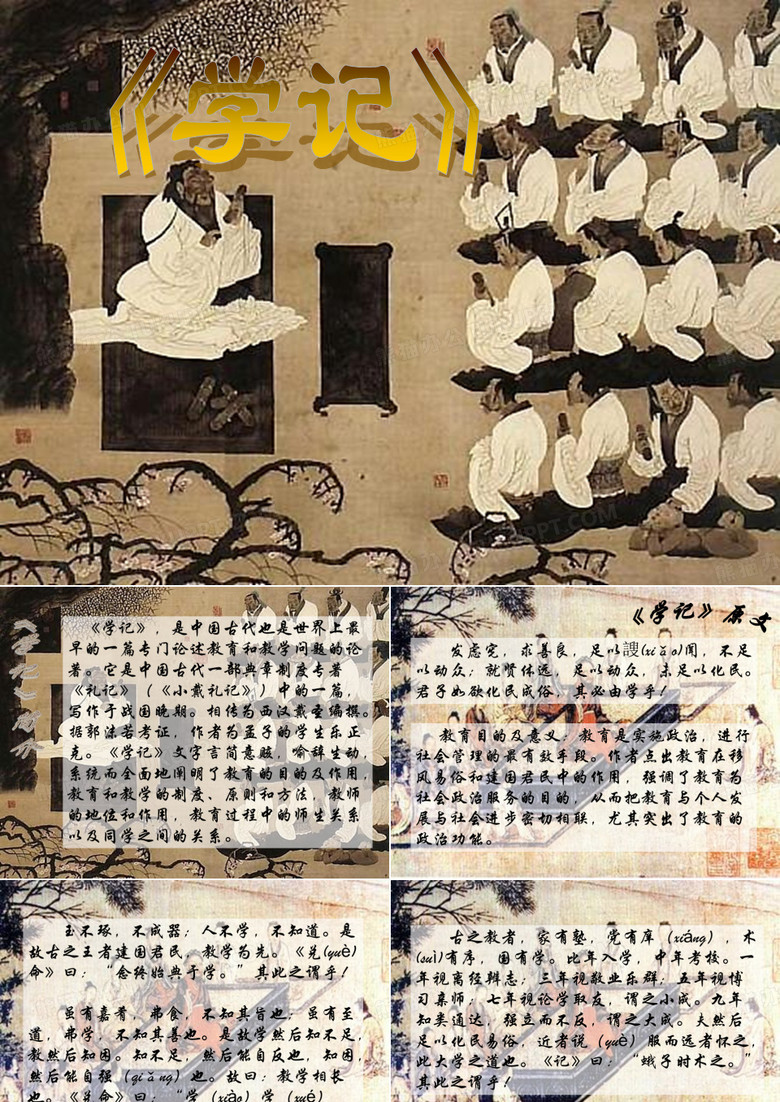 《学记》
《学记》，是中国古代也是世界上最
早的一篇专门论述教育和教学问题的论
著。它是中国古代一部典章制度专著
《礼记》（《小戴礼记》）中的一篇，
写作于战国晚期。相传为西汉戴圣编撰。
据郭沫若考证，作者为孟子的学生乐正
克。《学记》文字言简意赅，喻辞生动，
系统而全面地阐明了教育的目的及作用，
教育和教学的制度、原则和方法，教师
的地位和作用，教育过程中的师生关系
以及同学之间的关系。
《学记》原文
发虑宪，求善良，足以謏(xiǎo)闻，不足
以动众；就贤体远，足以动众，未足以化民。
君子如欲化民成俗，其必由学乎！
教育目的及意义：教育是实施政治，进行
社会管理的最有效手段。作者点出教育在移
风易俗和建国君民中的作用，强调了教育为
社会政治服务的目的，从而把教育与个人发
展与社会进步密切相联，尤其突出了教育的
政治功能。
玉不琢，不成器；人不学，不知道。是
故古之王者建国君民，教学为先。《兑(yuè)
命》曰：“念终始典于学。”其此之谓乎！
虽有嘉肴，弗食，不知其旨也；虽有至
道，弗学，不知其善也。是故学然后知不足，
教然后知困。知不足，然后能自反也，知困，
然后能自强（qiǎng）也。故曰：教学相长
也。《兑命》曰：“学（xiào）学（xué）
古之教者，家有塾，党有庠（xiáng），术
(suì)有序，国有学。比年入学，中年考核。一
年视离经辨志；三年视敬业乐群；五年视博
习亲师；七年视论学取友，谓之小成。九年
知类通达，强立而不反，谓之大成。夫然后
足以化民易俗，近者说（yuè）服而远者怀之，
此大学之道也。《记》曰：“蛾子时术之。”
其此之谓乎！